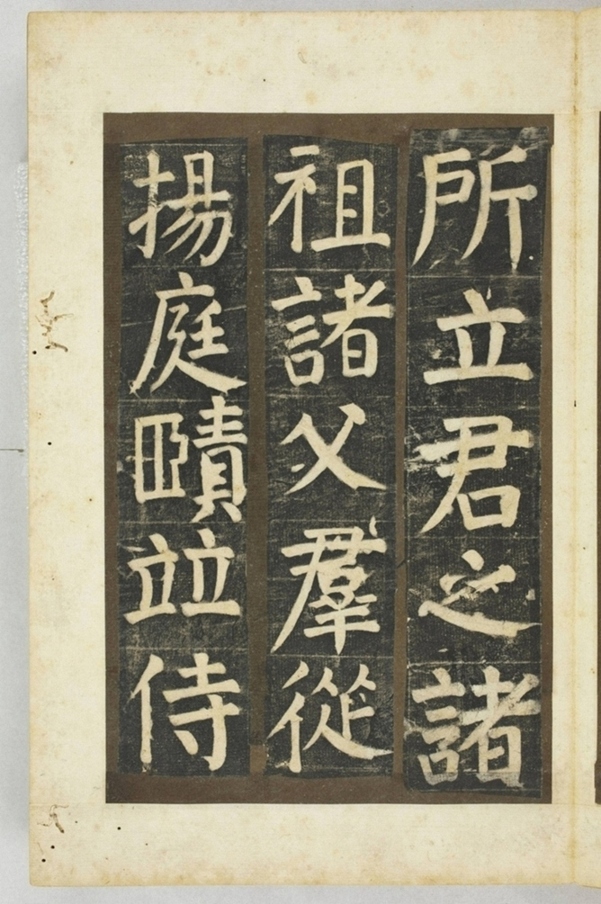 所立君之諸
祖諸父羣從
揚庭賾竝侍